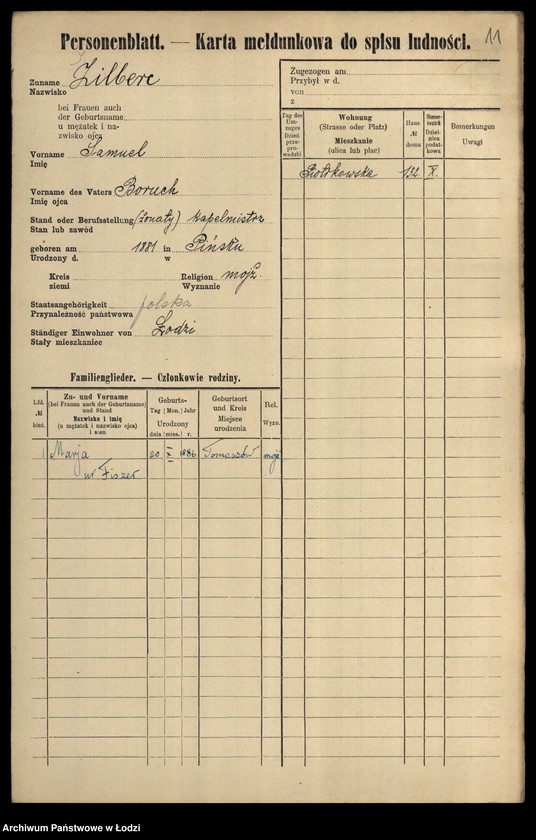 11
Personenblatt. — Karta meldunkowa do spisu ludności.
Zuname Zilberc
Nazwisko
bei Frauen auch
der Geburtsname
u mężatek i na-
zwisko ojca
Vorname Samuel
Imię
Vorname des Vaters Boruch
Imię ojca
Stand oder Berufsstellung (żonaty) kapelmistrz
Stan lub zawód
geboren am 1881 in Pińsku
Urodzony d. w
Kreis Religion mojż.
ziemi Wyznanie
Staatsangehörigkeit polska
Przynależność państwowa
Ständiger Einwohner von Łodzi
Stały mieszkaniec
Familienglieder. — Członkowie rodziny.
Lfd. № bież.
Zu- und Vorname
(bei Frauen auch der Geburtsname)
und Stand
Nazwisko i imię
(u mężatek i nazwisko ojca)
i stan
Geburts-
Tag Mon. Jahr
Urodzony
dnia mies. r.
Geburtsort
und Kreis
Miejsce
urodzenia
Rel.
Wyzn.
1 Marja 20 X 1886 Tomaszów mojż
ur Fiszer
Zugezogen am
Przybył w d.
von
z
Tag des
Um-
zuges
Dzień
prze-
pro-
wadzki
Wohnung
(Strasse oder Platz)
Mieszkanie
(ulica lub plac)
Haus-
№
domu
Steuer-
bezirk
Dziel-
nica
podat-
kowa
Bemerkungen
Uwagi
Piotrkowska 132 X.
Archiwum Państwowe w Łodzi